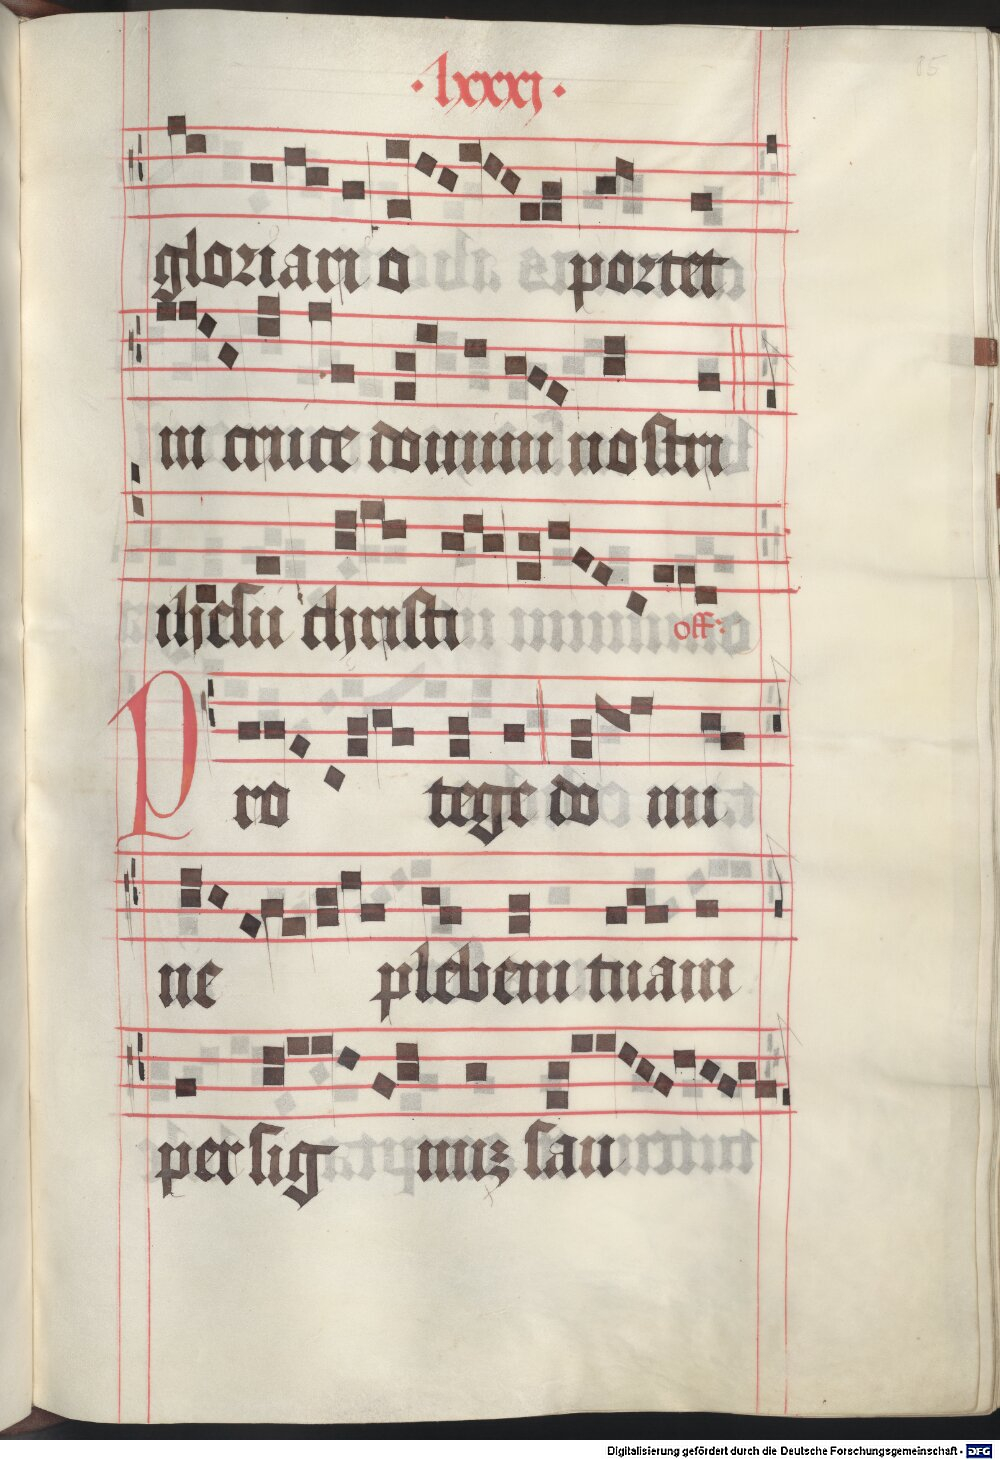 ·lxxxj·
85
gloriari o portet
in cruce domini nostri
ihesu christi off:
Pro tege do mi
ne plebem tuam
per sig nuz san
Digitalisierung gefördert durch die Deutsche Forschungsgemeinschaft - DFG